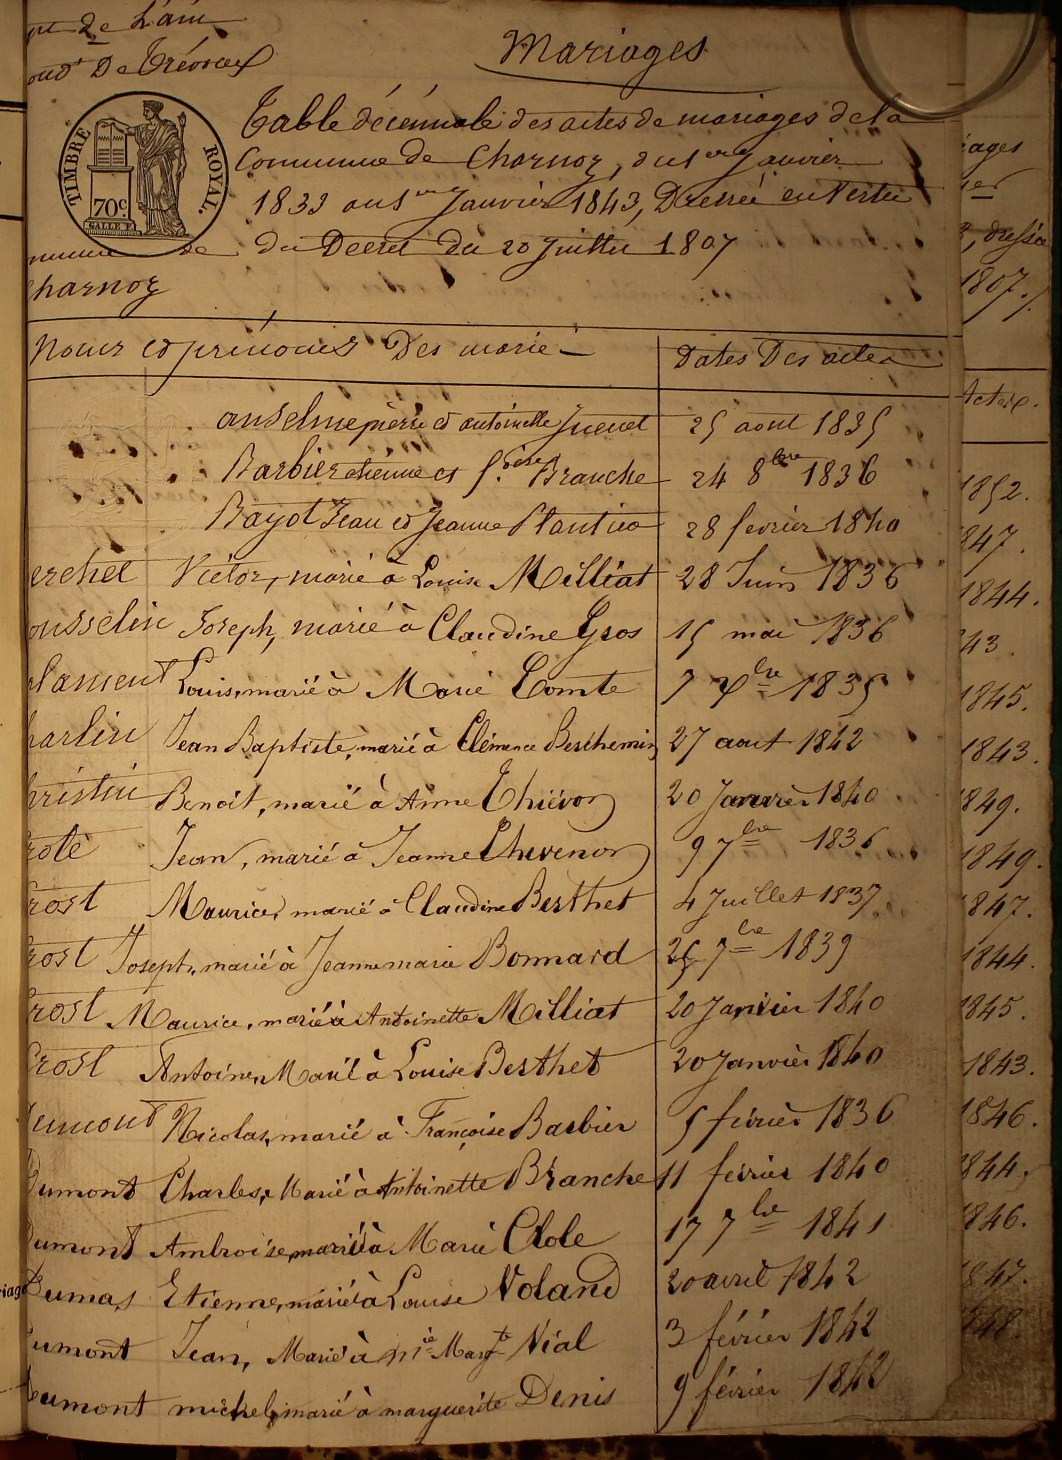 Mariages
De Trévoux
TIMBRE ROYAL.
70c.
Table décennale des actes de mariages de la
Commune de Charnoz, du 1er Janvier
1833 au 1er Janvier 1843, Dressée en Vertu
du Decret du 20 Juillet 1807
harnoz
Noms et prénoms Des mariés
Dates Des actes
anselme pierre et antoinette Juenet 25 aout 1835
Barbier etienne et Branche 24 8bre 1836
Bayot Jean et Jeanne Plantier 28 fevrier 1840
erchet Victor, marié à Louise Milliat 28 Juin 1836
ousselin Joseph, marié à Claudine Gros 15 mai 1836
lament Louis, marié à Marie Comte 7 Xbre 1835
harlin Jean Baptiste, marié à Clémence Berchemin 27 aout 1842
hristin Benoit, marié à Anne Thievon 20 Janvier 1840
rote Jean, marié à Jeanne Thevenon 9 7bre 1836
rost Maurice, marié à Claudine Berthet 4 Juillet 1837
rost Joseph, marié à Jeanne marie Bonnard 25 7bre 1839
rost Maurice, marié à Antoinette Milliat 20 Janvier 1840
rost Antoine, Marié à Louise Berthet 20 Janvier 1840
umont Nicolas, marié à Françoise Barbier 5 février 1836
Dumont Charles, Marié à Antoinette Branche 11 février 1840
umont Ambroise, marié à Marie Clole 17 7bre 1841
Dumas Etienne, marié à Louise Voland 20 avril 1842
umont Jean, Marié à Mie Margte Vial 3 février 1842
umont michel, marié à marguerite Denis 9 février 1842
iages
1807.
1852.
1847.
1844.
43.
1845.
1843.
1849.
1849.
1847.
1844.
1845.
1843.
1846.
1844.
1846.
1847.
1848.